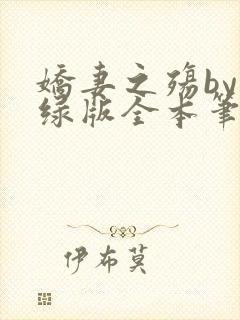 娇妻之殇by
绿版全本笔
伊布莫